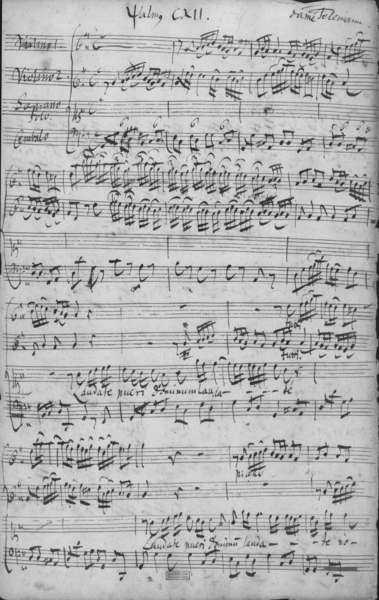 Psalm CXII.
di me Telemann
Violino 1.
Violino 2
Soprano
solo
Cembalo
tutti
Laudate pueri Dominum lauda - - - te
piano
Laudate pueri Dominū lauda - - - te no-